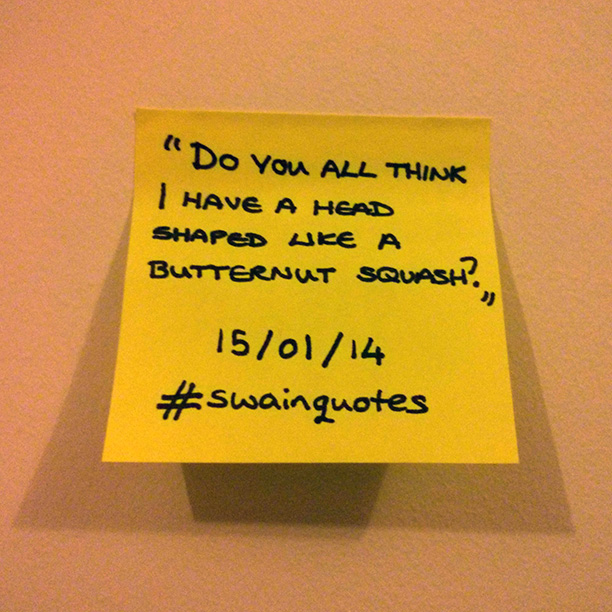 "Do you ALL THINK
I HAVE A HEAD
SHAPED LIKE A
BUTTERNUT SQUASH?"
15/01/14
#swainquotes